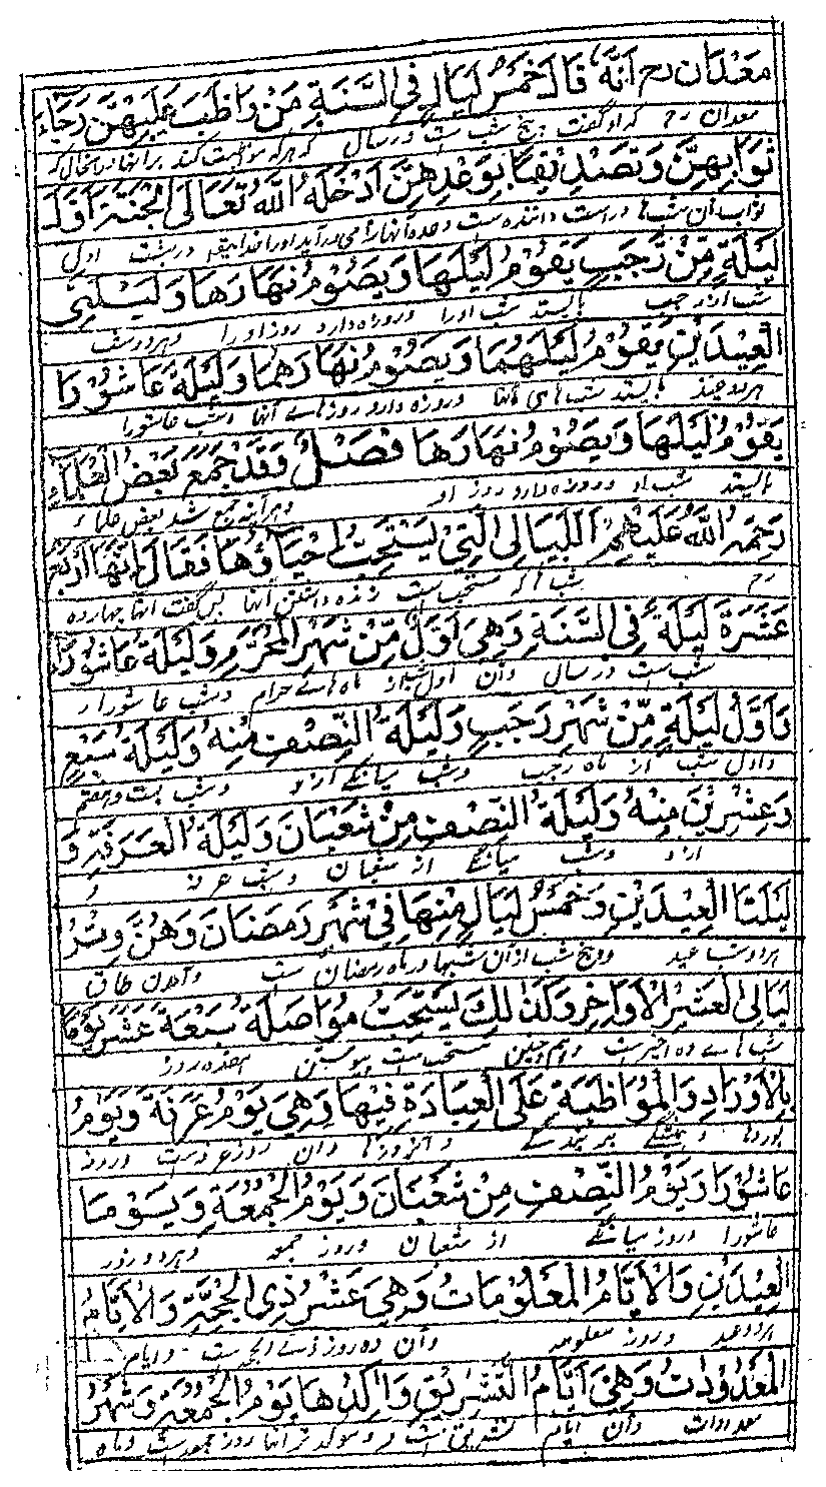 مَعْدَان رح اَنَّهٗ قَالَ خَمْسُ لَيَالٍ فِى السَّنَةِ مَنْ وَاظَبَ عَلَيْهِنَّ رَجَاءَ
معدان رح که او گفت پنج شب ست در سال که هر که مواظبت کند بر آنها در انحال که
ثَوَابِهِنَّ وَتَصْدِيْقًا بِوَعْدِهِنَّ اَدْخَلَهُ اللّٰهُ تَعَالَى الْجَنَّةَ اَوَّلُ
ثواب آن شبها و راست داننده ست وعده آنها را می در آید او را خدایتعالی در بهشت اول
لَيْلَةٍ مِّنْ رَّجَبٍ يَقُوْمُ لَيْلَهَا وَيَصُوْمُ نَهَارَهَا وَلَيْلَتَىِ
شب از رجب بایستد شب او را و روزه دارد روز او را و هر دو شب
الْعِيْدَيْنِ يَقُوْمُ لَيْلَهُمَا وَيَصُوْمُ نَهَارَهُمَا وَلَيْلَةُ عَاشُوْرَا
هر دو عید بایستد شب های آنها و روزه دارد روزهاے آنها و شب عاشورا
يَقُوْمُ لَيْلَهَا وَيَصُوْمُ نَهَارَهَا فَصْلٌ وَقَدْ جَمَعَ بَعْضُ الْعُلَمَاءِ
بایستد شب او و روزه دارد روز او و هر آینه جمع شد بعض علماء
رَحْمَةُ اللّٰهِ عَلَيْهِمْ اَللَّيَالِى الَّتِىْ يَسْتَحِبُّ اِحْيَاؤُهَا فَقَالَ اِنَّهَا اَرْبَعَ
رح شبها که مستحب ست زنده داشتن آنها پس گفت آنها چهارده
عَشَرَةَ لَيْلَةً فِى السَّنَةِ وَهِىَ اَوَّلُ مِّنْ شَهْرِ الْمُحَرَّمِ وَلَيْلَةُ عَاشُوْرَا
شب ست در سال و آن اول شب از ماه هاے حرام و شب عاشورا
وَاَوَّلُ لَيْلَةٍ مِّنْ شَهْرِ رَجَبٍ وَلَيْلَةُ النِّصْفِ مِنْهُ وَلَيْلَةُ سَبْعٍ
و اول شب از ماه رجب و شب میانگی از و و شب بست و هفتم
وَعِشْرِيْنَ مِنْهُ وَلَيْلَةُ النِّصْفِ مِنْ شَعْبَانَ وَلَيْلَةُ الْعَرَفَةِ وَ
از و و شب میانگے از شعبان و شب عرفه و
لَيْلَتَا الْعِيْدَيْنِ وَخَمْسُ لَيَالٍ مِنْهَا فِىْ شَهْرِ رَمَضَانَ وَهُنَّ وِتْرُ
هر دو شب عید و پنج شب از آن شبها در ماه رمضان ست و آن طاق
لَيَالِى الْعَشْرِ الْاَوَاخِرِ وَكَذٰلِكَ يَسْتَحِبُّ مُوَاصَلَةُ سَبْعَةَ عَشَرَ يَوْمًا
شب هاے ده اخیر ست و هم چنین مستحب ست پیوستن هفده روز
بِالْاَوْرَادِ وَالْمُوَاظَبَةِ عَلَى الْعِبَادَةِ فِيْهَا وَهِىَ يَوْمُ عَرَفَةَ وَيَوْمُ
بوردها و همیشگی بر بندگی در آن روزها و آن روز عرفه ست و روز
عَاشُوْرَا وَيَوْمُ النِّصْفِ مِنْ شَعْبَانَ وَيَوْمُ الْجُمُعَةِ وَيَوْمَا
عاشورا و روز میانگی از شعبان و روز جمعه و هر دو روز
الْعِيْدَيْنِ وَالْاَيَّامُ الْمَعْلُوْمَاتُ وَهِىَ عَشْرُ ذِى الْحِجَّةِ وَالْاَيَّامُ
هر دو عید و روز معلومه و آن ده روز ذے الحجه ست و ایام
الْمَعْدُوْدَاتُ وَهِىَ اَيَّامُ التَّشْرِيْقِ وَاٰكَدُهَا يَوْمُ الْجُمُعَةِ وَشَهْرُ
معدودات و آن ایام تشریق ست و موکد تر آنها روز جمعه ست و ماه